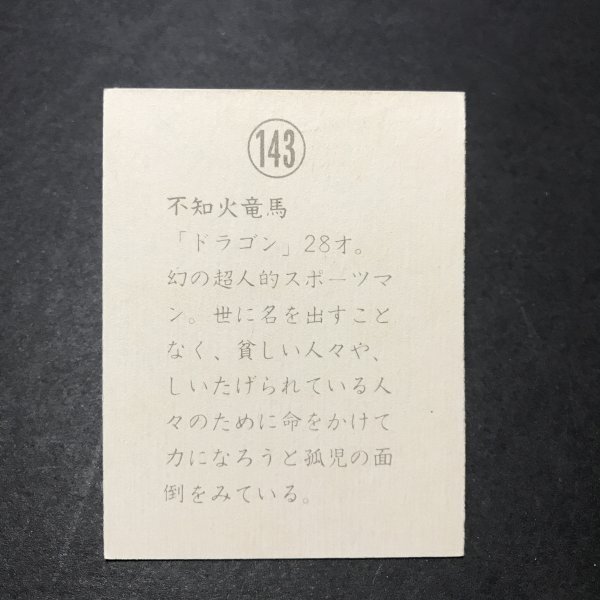 143
不知火竜馬
「ドラゴン」28才。
幻の超人的スポーツマ
ン。世に名を出すこと
なく、貧しい人々や、
しいたげられている人
々のために命をかけて
力になろうと孤児の面
倒をみている。